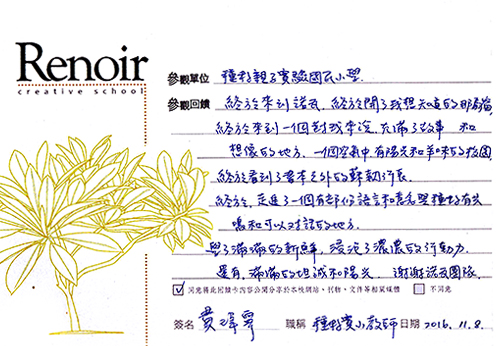 Renoir
creative school
參觀單位 種籽親子實驗國民小學
參觀回饋 終於來到諾瓦,終於開了我想知道的那扇窗
終於來到一個對我來說,充滿了故事 和
想像的地方,一個空氣中有陽光和羊味的校園
終於看到了書本之外的蘇勒行長
終於,走進了一個有部份語言和意念與種籽有共
鳴和可以對話的地方。
學了滿滿的新鮮,浸沉了濃濃的行動力
還有,滿滿的坦誠和陽光。謝謝諾瓦團隊
同意將此回饋卡內容公開分享於本校網站、刊物、文件等相關媒體 不同意
簽名 黃瑋寧 職稱 種籽實小教師 日期 2016.11.8.